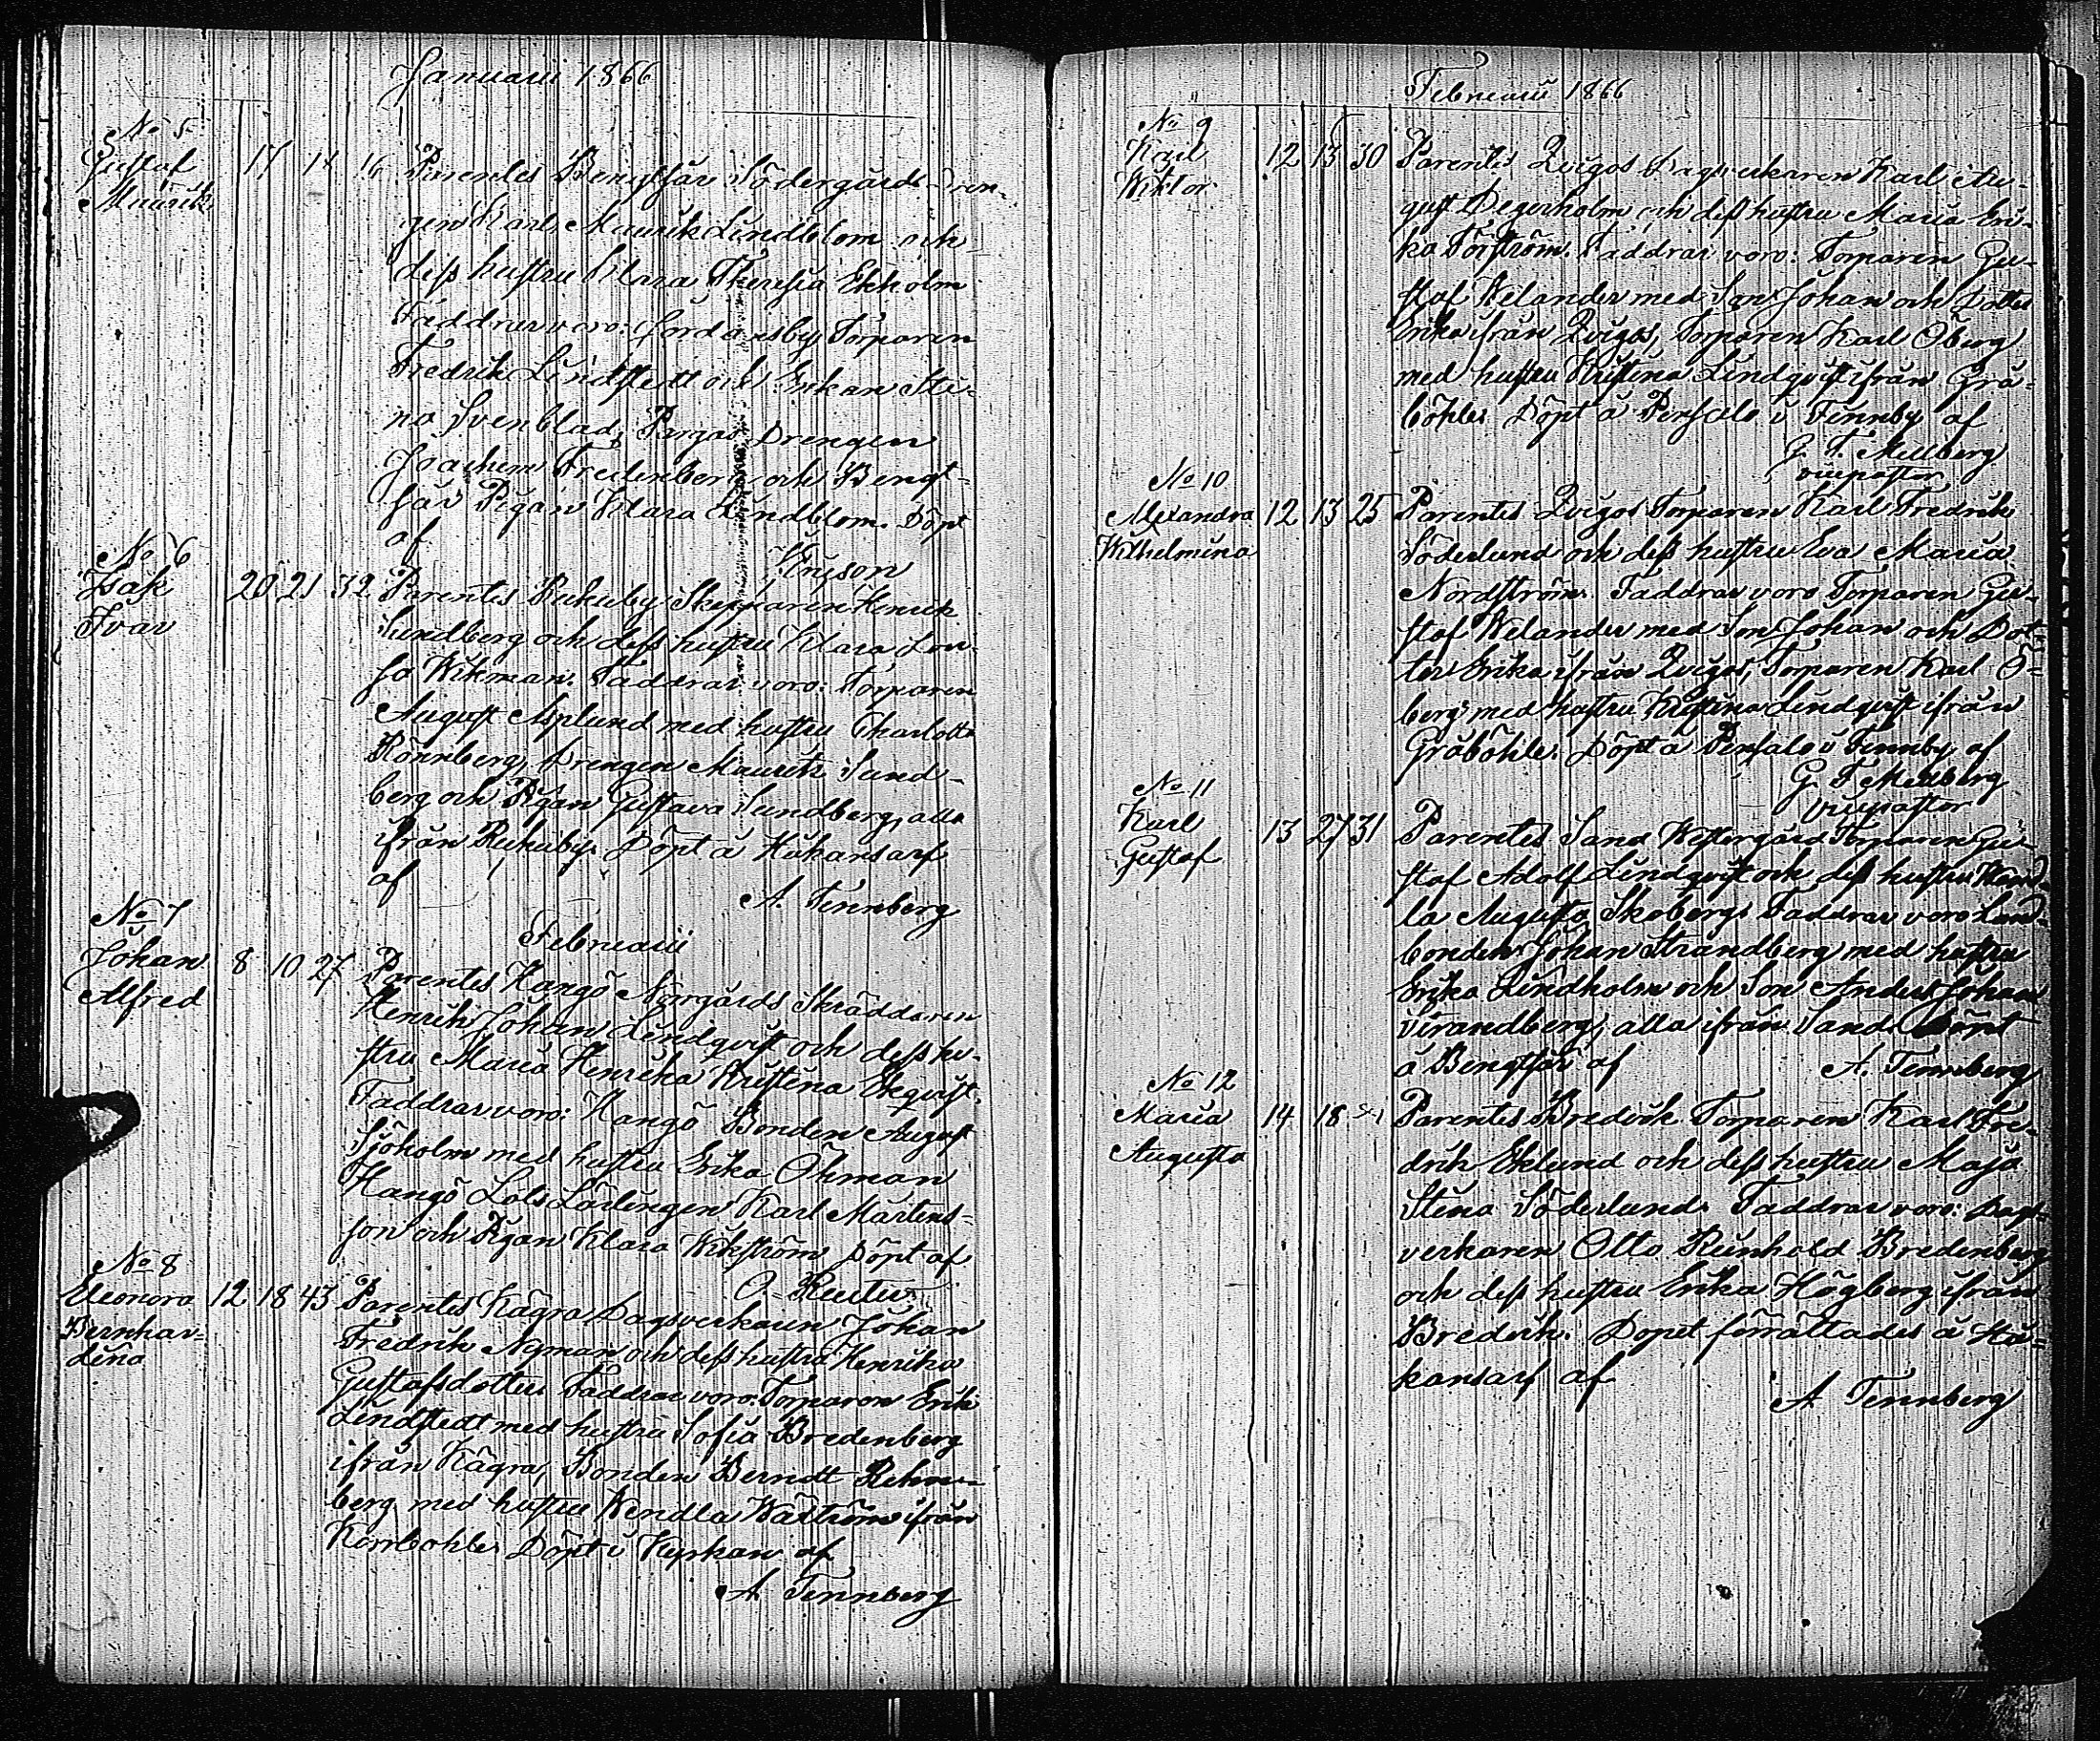 Januarii 1866
No 5
Gustaf 17 18 16 Parentes Bengtsår Södergårds Dren-
Maurits
gen Karl Maurits Lindblom och
dess hustru Klara Theresia Ekholm
Faddrar voro: Jordansby Torparen
Fredrik Lindstedt och Enkan Sti-
na Svenblad, Pargas Drengen
Joachim Fredenberg och Bengt-
sår Pigan Klara Lindblom. Döpt
af
No 6
Isak 20 21 32 Parentes Skepparen Henrik
Ivar
Sundberg och dess hustru Klara Lovi-
sa Wikman. Faddrar voro: Torparen
August Asplund med hustru Charlotta
Rönnberg, Drengen Maurits Sund-
berg och Pigan Gustava Sundberg, alla
ifrån Döpt å Håkansarf
af
A. Tennberg
Februarii
No 7
Johan 8 10 27 Parentes Hangö Norrgårds Skräddaren
Alfred
Henrik Johan Lindqvist och dess hu-
stru Maria Henrika Kristina Ekqvist.
Faddrar voro: Hangö Bonden August
Sjöholm med hustru Erika Öhman
Hangö Lots Lärlingen Karl Mårtens-
son och Pigan Klara Wikström Döpt af
O. Reuter
No 8
Eleonora 12 18 43 Parentes Kågra Dagsverkaren Johan
Bernhar-
dina
Fredrik Nyman och dess hustru Henrika
Gustafsdotter Faddrar voro: Torparen Erik
Lindstedt med hustru Sofia Bredenberg
ifrån Kågra, Bonden Berndt Rehn-
berg med hustru Wendla Wäström ifrån
Korrböhle. Döpt i Kyrkan af
A. Tennberg
Februarii 1866
No 9
Karl 12 13 30 Parentes Qvigos Dagsverkaren Karl Au-
Wiktor
gust Degerholm och dess hustru Maria Eri-
ka Törström. Faddrar voro: Torparen Gu-
staf Welander med Son Johan och Dotter
Erika ifrån Qvigos, Torparen Karl Öberg
med hustru Kristina Lindqvist ifrån Grå-
böhle. Döpt å Persalo i Finnby af
G. F. Mellberg
vicepastor
No 10
Alexandra 12 13 25 Parentes Qvigos Torparen Karl Fredrik
Wilhelmina
Söderlund och dess hustru Eva Maria
Nordström. Faddrar voro Torparen Gu-
staf Welander med Son Johan och Dot-
ter Erika ifrån Qvigos, Torparen Karl Ö-
berg med hustru Kristina Lindqvist ifrån
Gråböhle. Döpt å Persalo i Finnby af
G. F. Mellberg
vicepastor
No 11
Karl 13 27 31 Parentes Sand Westergård Torparen Gu-
Gustaf
staf Adolf Lindqvist och dess hustru Wend-
la Augusta Skoberg. Faddrar voro Land-
bonden Johan Strandberg med hustru
Erika Lindholm och Son Anders Johan
Strandberg, alla ifrån Sand. Döpt
å Bengtsår af
A. Tennberg
No 12
Maria 14 18 Parentes Bredvik Torparen Karl Fre-
Augusta
drik Eklund och dess hustru Maja
Stina Söderlund. Faddrar voro: Dags-
verkaren Otto Reinhold Bredenberg
och dess hustru Erika Högberg ifrån
Bredvik. Dopet förrättades å Hå-
kansarf af
A Tennberg